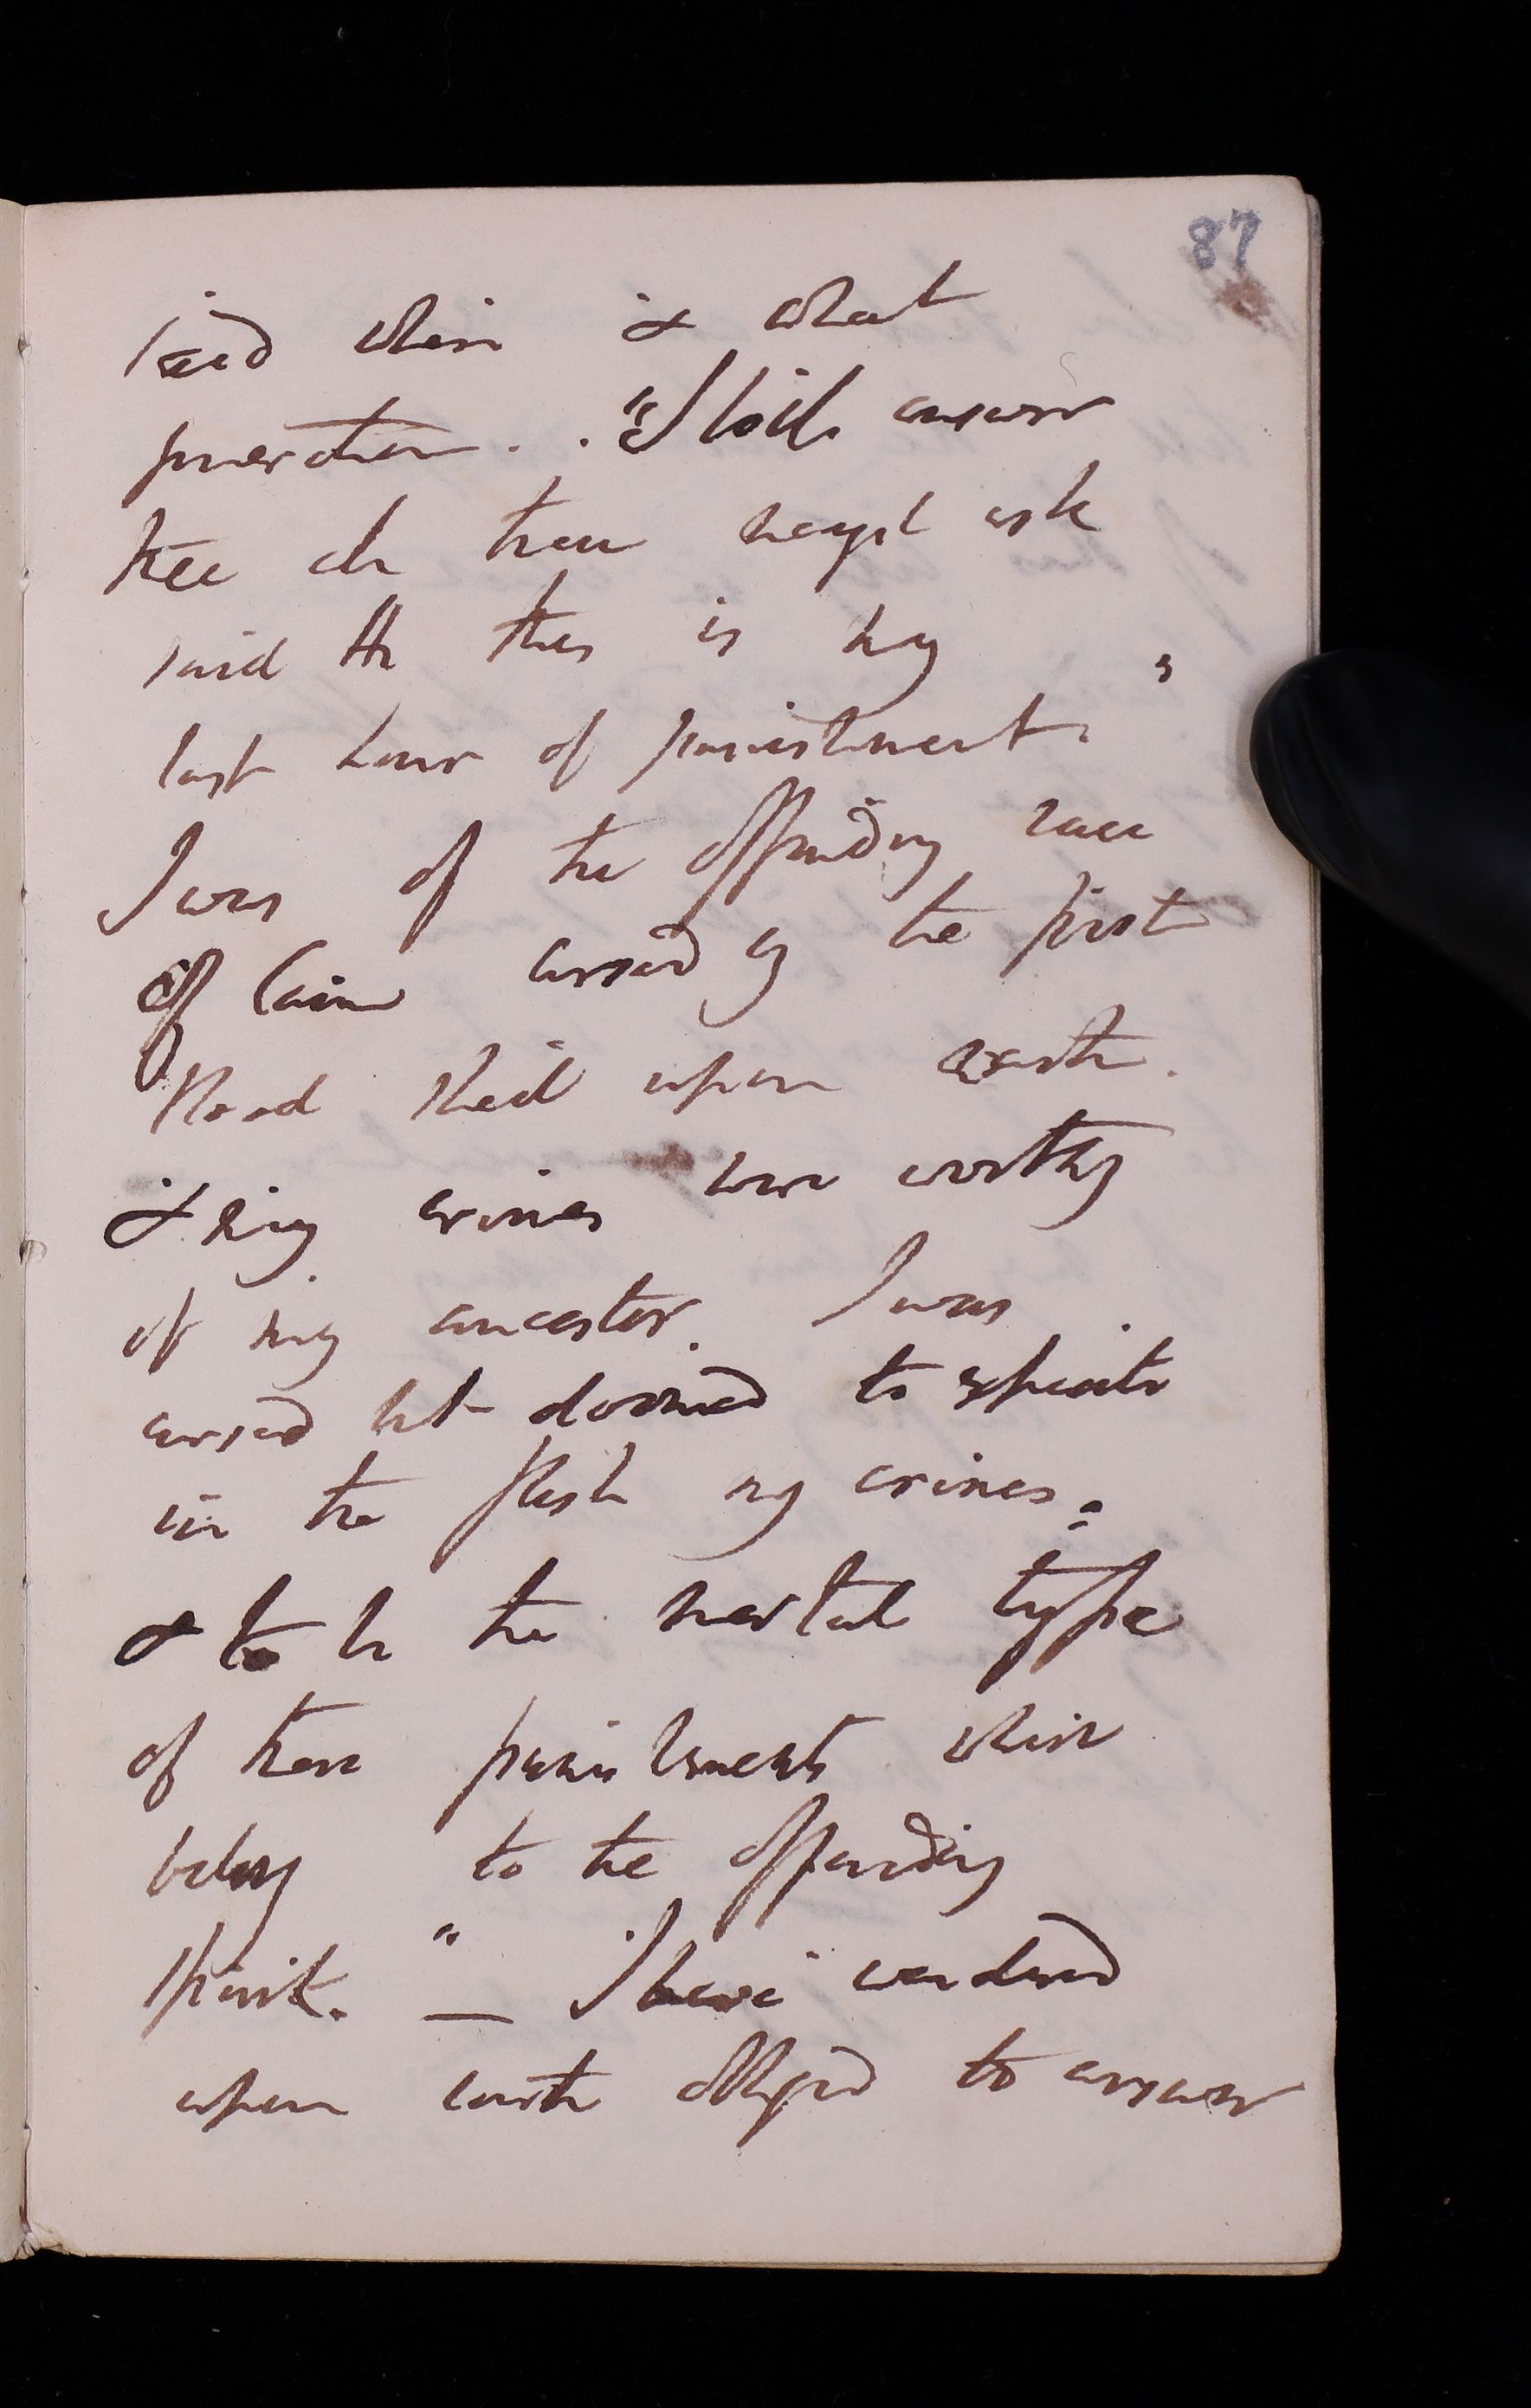 87
said then & what
generation . . "I will answer
thee all thou mayst ask
said He this is my
last hour of punishment.
I was of the offending race
of Cain cursed by the first
blood shed upon earth.
& my crimes were worthy
of my ancestor. I was
cursed but doomed to expiate
in the flesh my crimes.
& to be the mortal type
of those punishments which
belong to the offending
Spirit." — I have wandered
upon earth obliged to answer